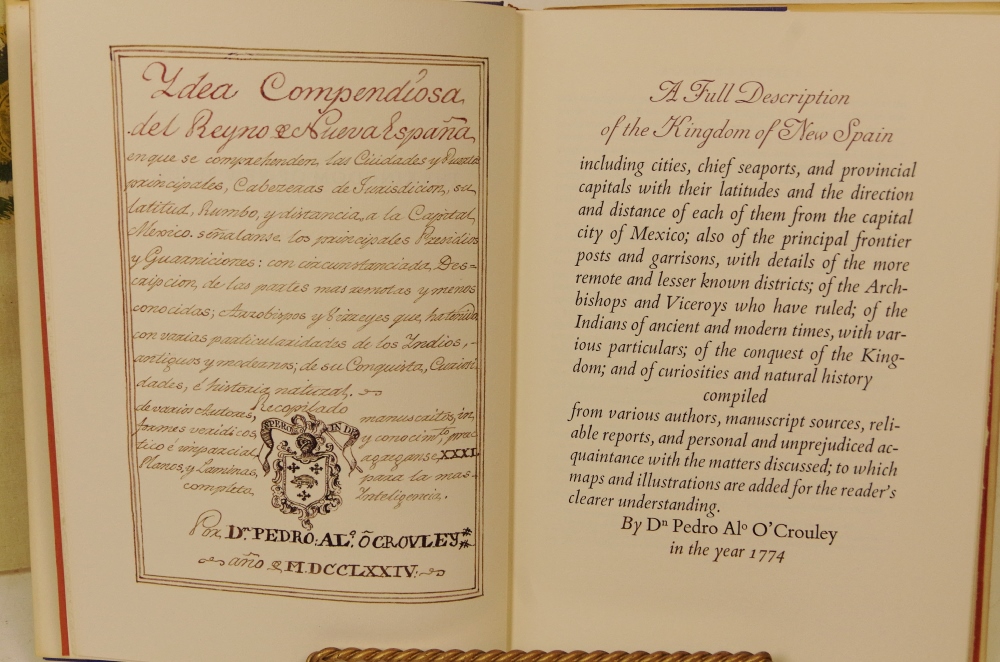 Ydea Compendiosa
del Reyno de Nueva España
en que se comprehenden las Ciudades y Puertos
principales, Cabezeras de Jurisdicion, su
latitud, Rumbo, y distancia a la Capital
Mexico. señalanse los principales Presidios
y Guarniciones: con circunstanciada Des=
cripcion, de las partes mas remotas y menos
conocidas; Arzobispos y Virreyes que, ha tenido
con varias particularidades de los Yndios,
antiguos y modernos; de su Conquista, Curiosi
dades, é historia natural.
recopilado
de varios Autores, manuscritos, in,
formes veridicos y conocim.to prac
tico é imparcial agreganse XXXI.
Planos, y Laminas, para la mas
completa Ynteligencia.
SPERO IN DEO
Por D.n PEDRO AL.o ÕCROVLEY
año de M.DCCLXXIV.
A Full Description
of the Kingdom of New Spain
including cities, chief seaports, and provincial
capitals with their latitudes and the direction
and distance of each of them from the capital
city of Mexico; also of the principal frontier
posts and garrisons, with details of the more
remote and lesser known districts; of the Arch-
bishops and Viceroys who have ruled; of the
Indians of ancient and modern times, with var-
ious particulars; of the conquest of the King-
dom; and of curiosities and natural history
compiled
from various authors, manuscript sources, reli-
able reports, and personal and unprejudiced ac-
quaintance with the matters discussed; to which
maps and illustrations are added for the reader's
clearer understanding.
By Dn Pedro Alo O'Crouley
in the year 1774